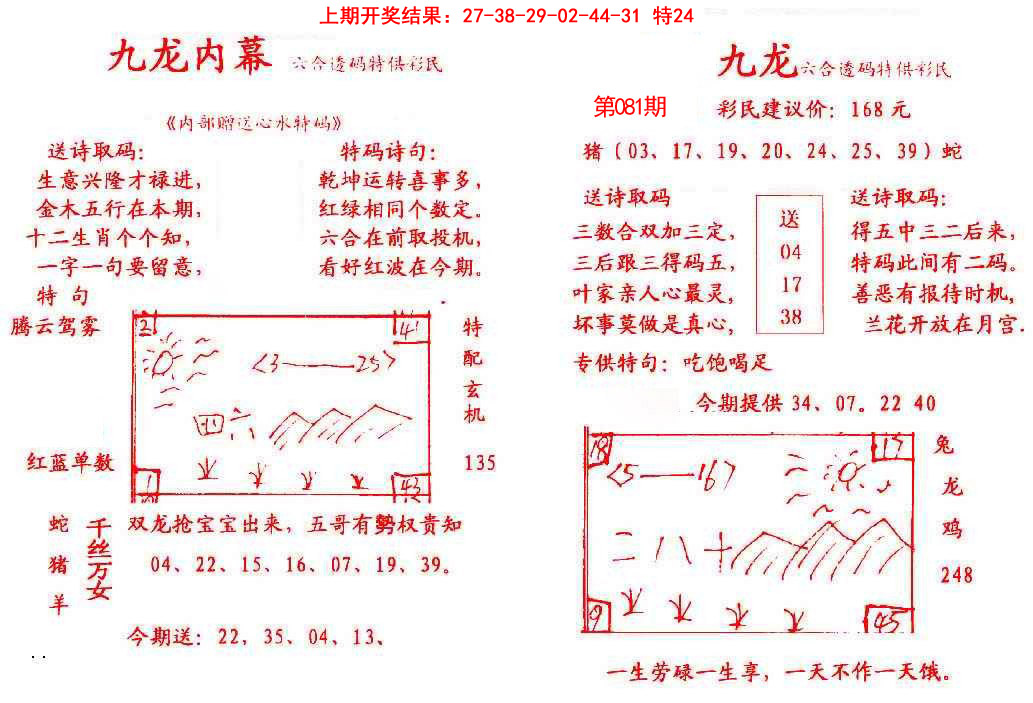 上期开奖结果：27-38-29-02-44-31 特24
九龙内幕 六合透码特供彩民
《内部赠送心水特码》
送诗取码：
生意兴隆才禄进，
金木五行在本期，
十二生肖个个知，
一字一句要留意，
特码诗句：
乾坤运转喜事多，
红绿相同个数定。
六合在前取投机，
看好红波在今期。
特 句
腾云驾雾
红蓝单数
21
41
<3——25>
四六
1
43
特
配
玄
机
135
蛇
猪
羊
千丝万女
双龙抢宝宝出来，五哥有勢权贵知
04、22、15、16、07、19、39。
今期送：22、35、04、13、
九龙六合透码特供彩民
第081期 彩民建议价：168元
猪（03、17、19、20、24、25、39）蛇
送诗取码
三数合双加三定，
三后跟三得码五，
叶家亲人心最灵，
坏事莫做是真心，
送
04
17
38
送诗取码：
得五中三二后来，
特码此间有二码。
善恶有报待时机，
兰花开放在月宫.
专供特句：吃饱喝足
今期提供 34、07。22 40
18
17
<5——16>
二八十
9
45
兔
龙
鸡
248
一生劳碌一生享，一天不作一天饿。